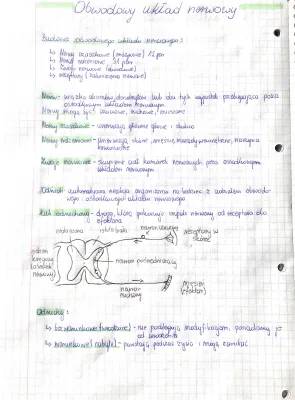 Obwodowy układ nerwowy
Budowa obwodowego układu nerwowego:
↳ Nerwy czaszkowe (mózgowe) 12 par
↳ Nerwy rdzeniowe 31 par
↳ Zwoje nerwowe
↳ receptory (zakończenia nerwowe)
Nerw - wiązka aksonów, dendrytów lub obu tych wypustek przebiegająca poza
ośrodkowym układem nerwowym.
Nerwy mogą być: czuciowe, ruchowe, mieszane
Nerwy czaszkowe - unerwiają głównie głowę i
Nerwy rdzeniowe - unerwiają skórę, mięśnie, narządy wewnętrzne,
kończyny
Zwoje nerwowe - skupienie ciał komórek nerwowych poza ośrodkowym
układem nerwowym
Odruch - automatyczna reakcja organizmu na bodziec z udziałem obwodo-
wego i ośrodkowego układu nerwowego
Łuk odruchowy - droga, którą pokonuje impuls nerwowy od receptora do
efektora
istota szara
istota biała
neuron czuciowy
receptory w
skórze
rdzeń
kręgowy
(ośrodek
nerwowy)
neuron pośredniczący
neuron
ruchowy
mięsień
(efektor)
Odruchy:
↳ bezwarunkowe (wrodzone) - nie podlegają modyfikacjom, posiadamy je
od urodzenia
↳ warunkowe (nabyte) - powstają podczas życia i mogą zanikać